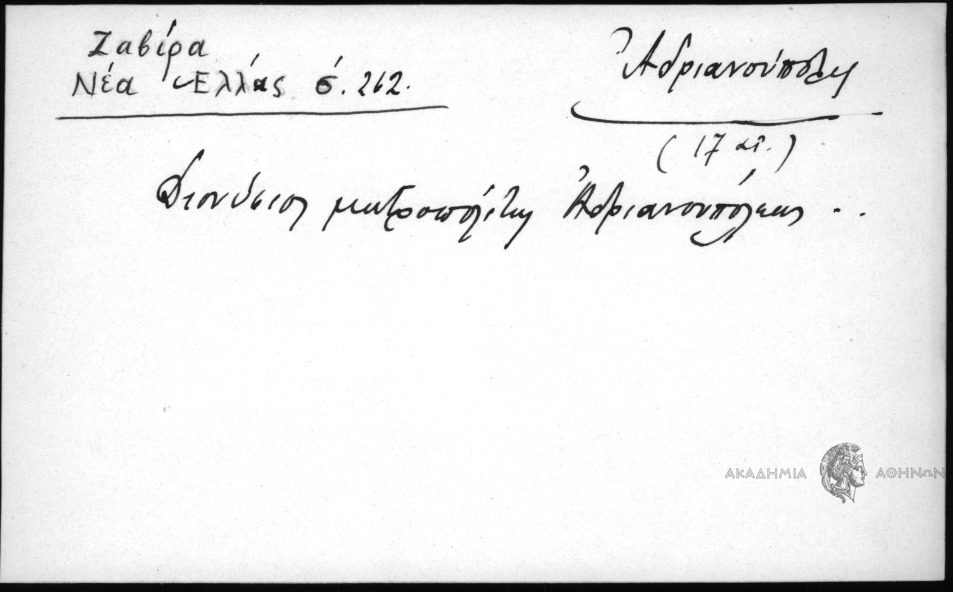 Ζαβίρα
Νέα Ἑλλάς σ. 262.
Ἀδριανούπολις
(17 αἰ.)
Διονύσιος μητροπολίτης Ἀδριανουπόλεως . .
ΑΚΑΔΗΜΙΑ ΑΘΗΝΩΝ